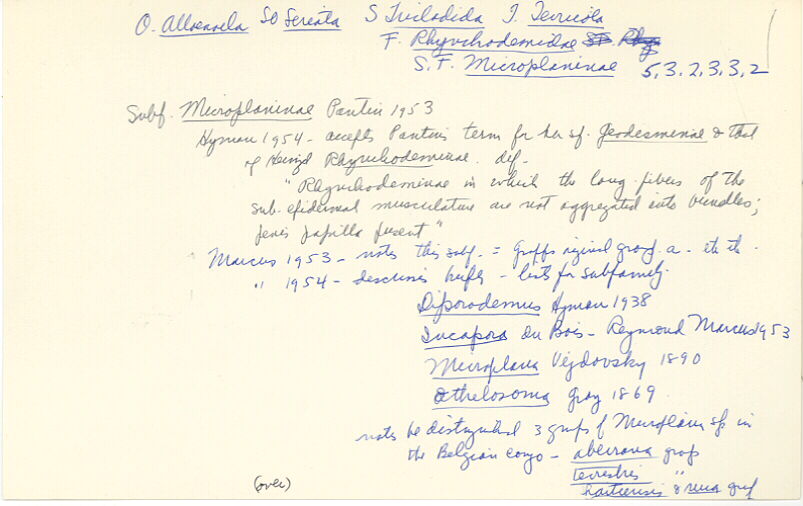 O. Alloeocoela SO Seriata S Tricladida I. Terricola
F. Rhynchodemidae
S.F. Microplaninae 5,3,2,3,3,2
Subf. Microplaninae Pantin 1953
Hyman 1954 - accepts Pantin's term for her sf. Geodesminae & that
of Heinzel Rhynchodeminae. def.
"Rhynchodeminae in which the long. fibers of the
sub-epidermal musculature are not aggregated into bundles;
penis papilla present"
Marcus 1953 - notes this subf. = Graff's original group a - etc etc.
" 1954 - describes briefly - lists for subfamily.
Diporodemus Hyman 1938
Incapora du Bois-Reymond Marcus 1953
Microplana Vejdovsky 1890
Othelosoma Gray 1869
notes be distinguished 3 groups of Microplana sp in
the Belgian Congo - aberrana group
terrestris "
haitiensis &
(over)